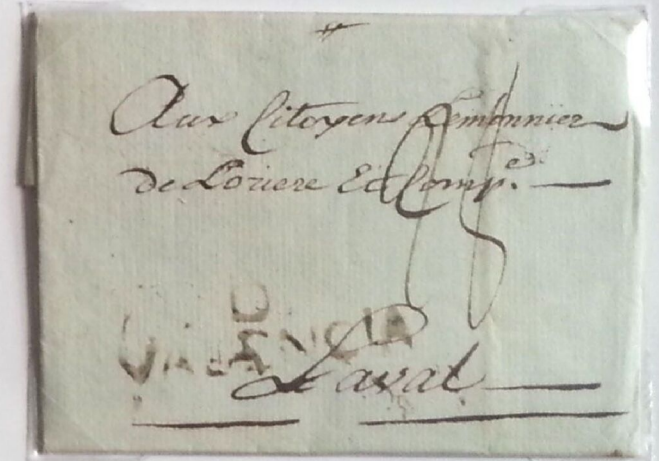 Aux Citoyens Lemonnier
de Loriere Et Comp.e
Laval